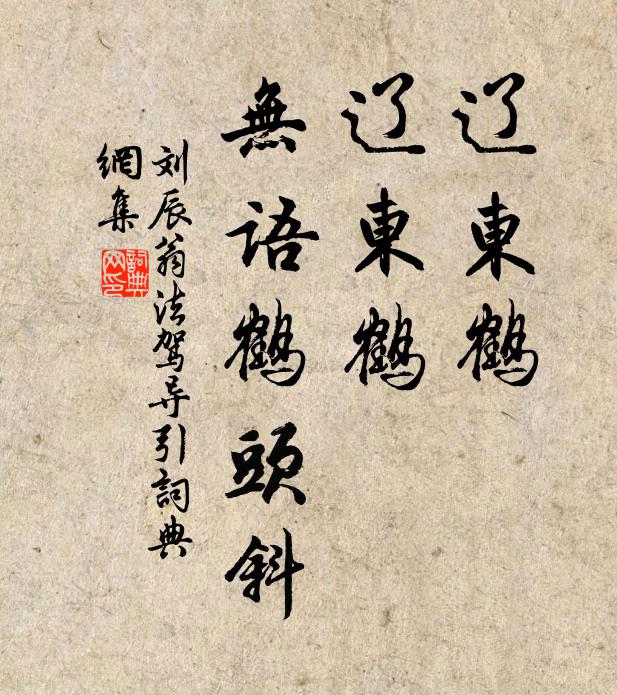 辽東鶴
辽東鶴
無語鶴頭斜
刘辰翁法驾导引詞典
網集
詞典
网印